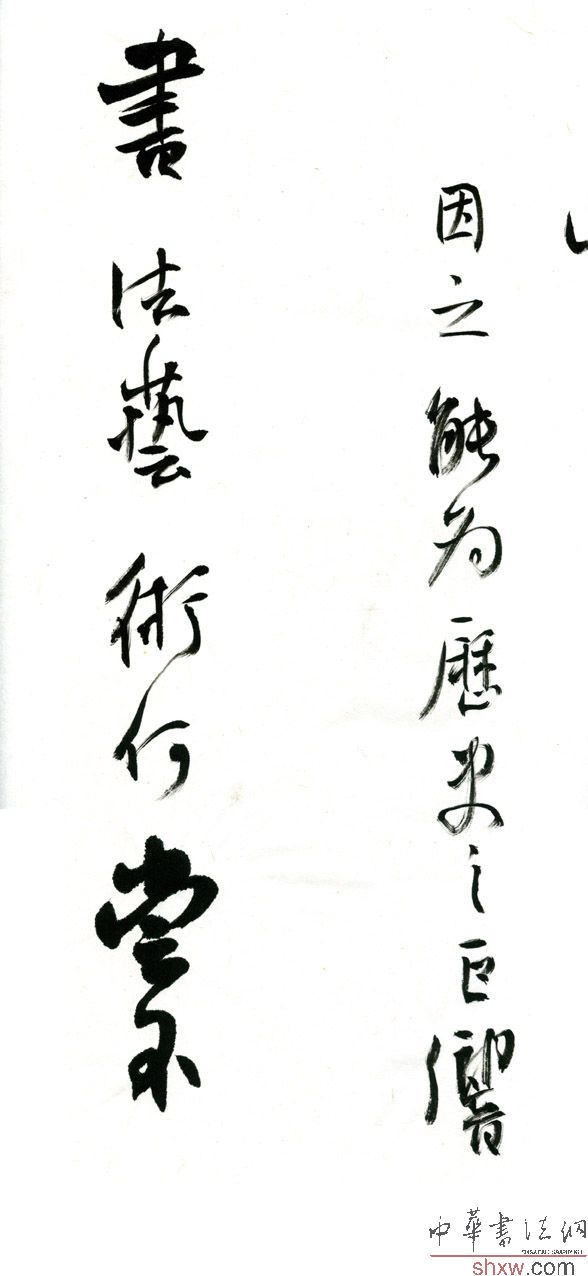 因之能为歷史之巨響
書法藝術何嘗不
中華書法網
shxw.com